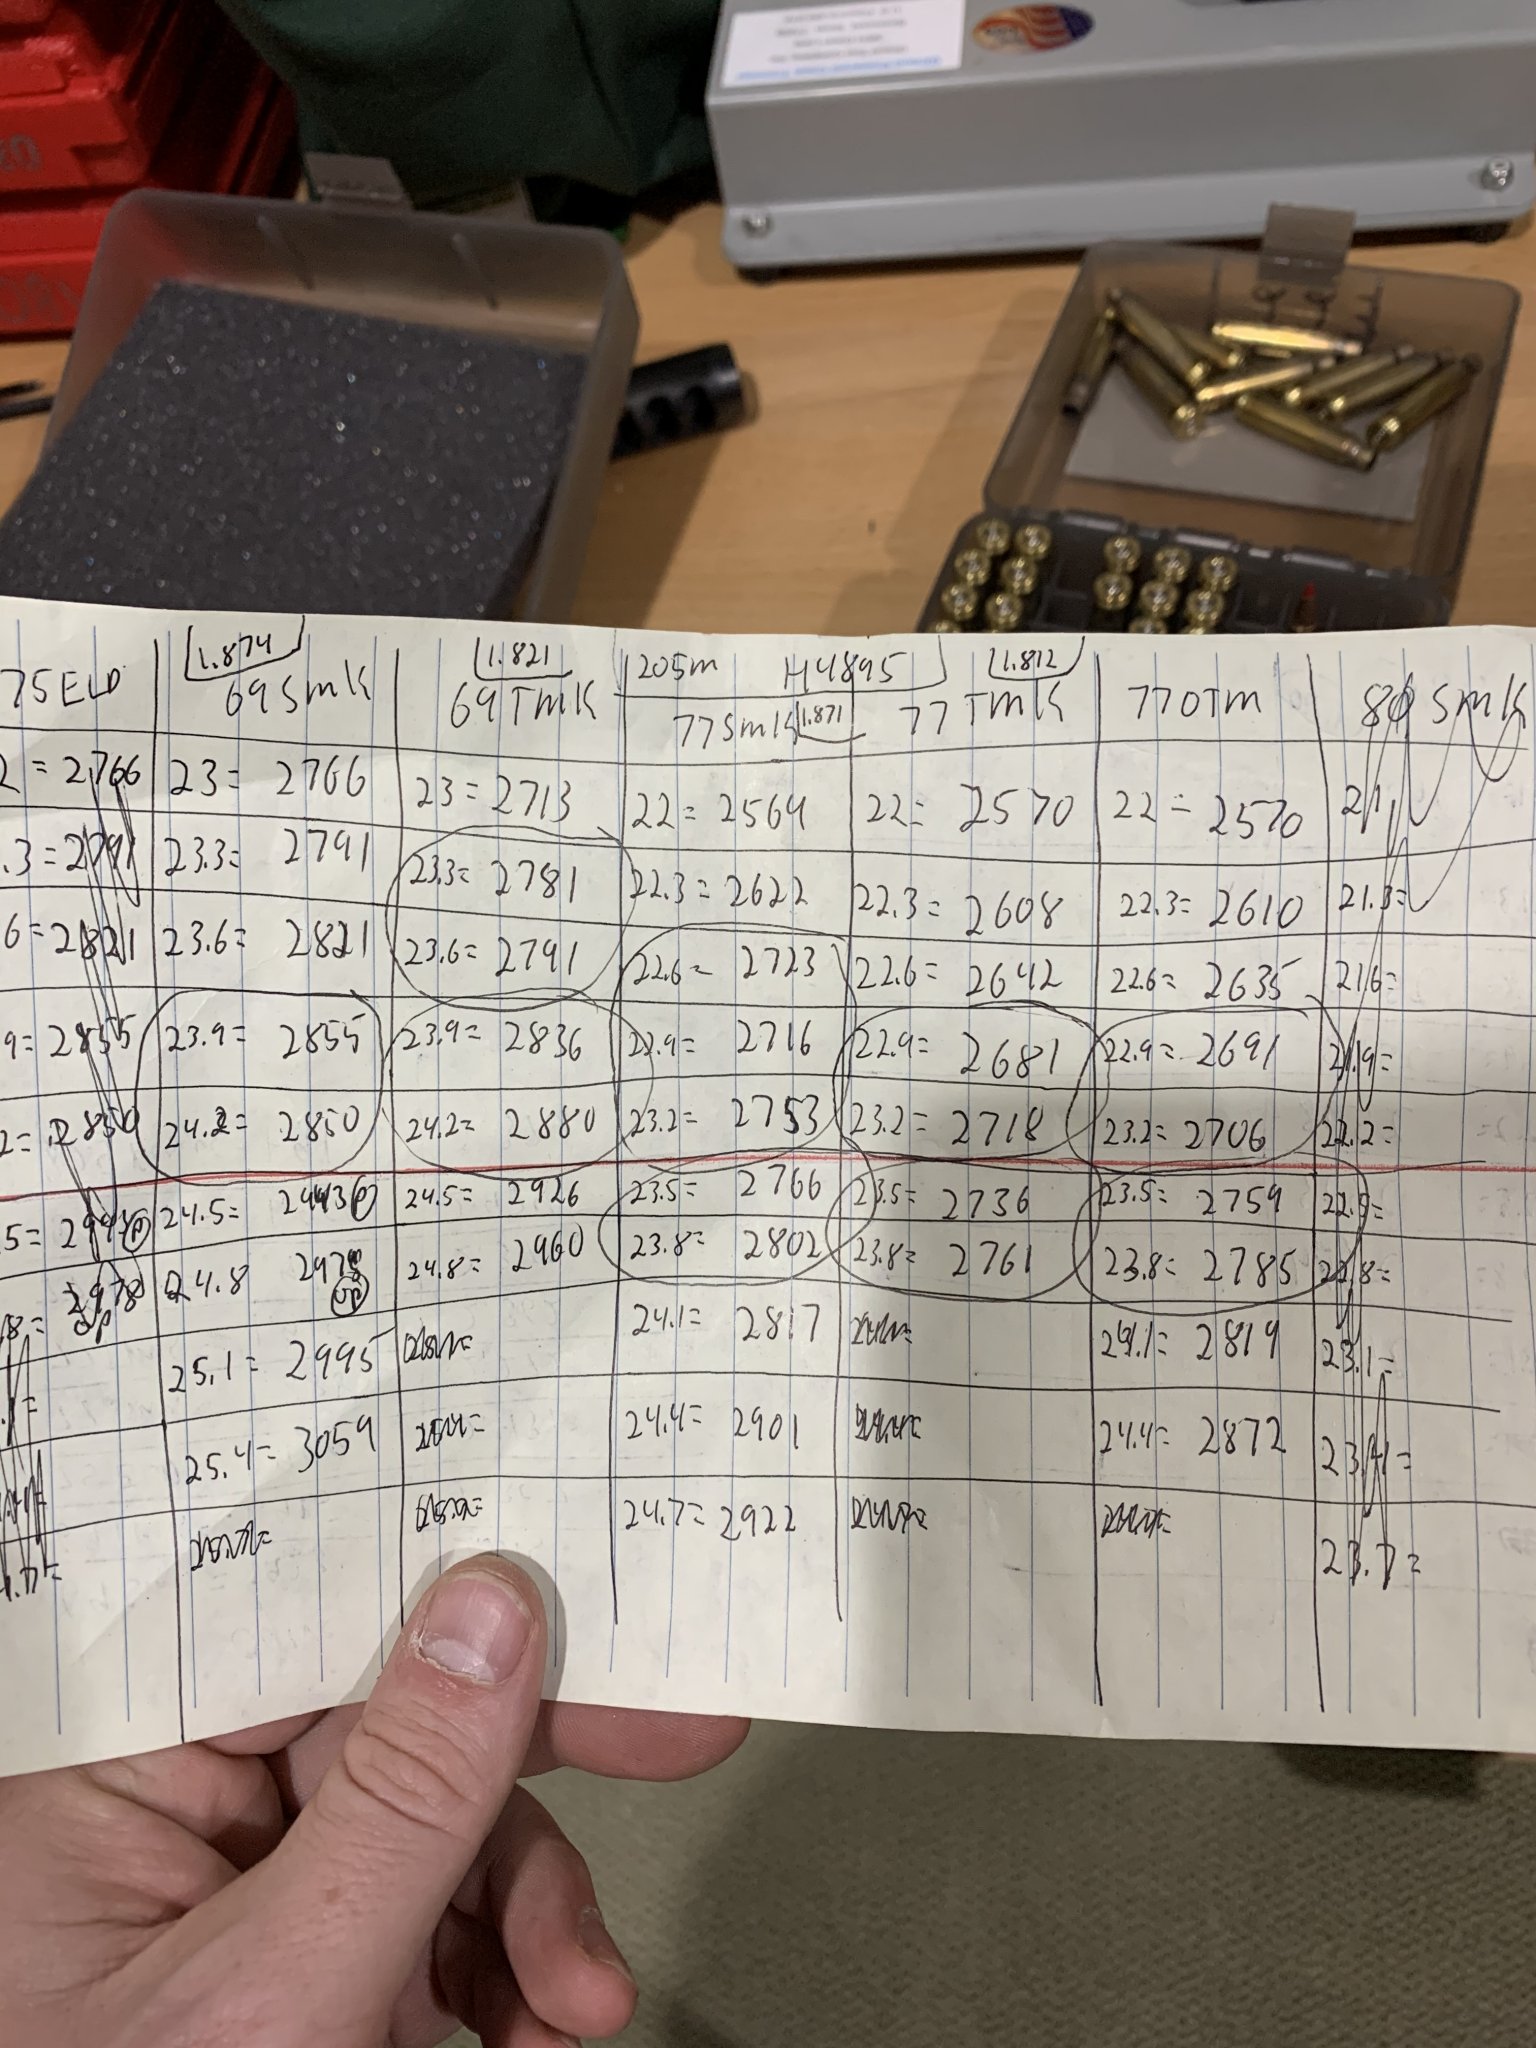 1.874 1.821 205m H4895 1.812
75 ELD 69 SMK 69 TMK 77 SMK 1.871 77 TMK 77 OTM 80 SMK
2 = 2766 23 = 2766 23 = 2713 22 = 2569 22 = 2570 22 = 2570 21
.3 = 2791 23.3 = 2791 23.3 = 2781 22.3 = 2622 22.3 = 2608 22.3 = 2610 21.3 =
6 = 2821 23.6 = 2821 23.6 = 2791 22.6 = 2723 22.6 = 2642 22.6 = 2635 21.6 =
9 = 2855 23.9 = 2855 23.9 = 2836 22.9 = 2716 22.9 = 2681 22.9 = 2691 21.9 =
2 = 2850 24.2 = 2850 24.2 = 2880 23.2 = 2753 23.2 = 2718 23.2 = 2706 22.2 =
5 = P 24.5 = 2443 P 24.5 = 2926 23.5 = 2766 23.5 = 2736 23.5 = 2759 22.5 =
.8 = 2978 OP 24.8 2978 OP 24.8 = 2960 23.8 = 2802 23.8 = 2761 23.8 = 2785 22.8 =
25.1 = 2995 24.1 = 2817 24.1 = 2819 23.1 =
25.4 = 3059 24.4 = 2901 24.4 = 2872 23.4 =
24.7 = 2922 23.7 =